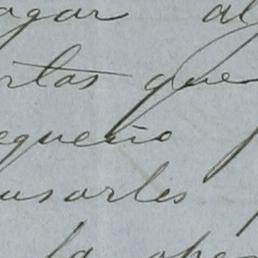 agar al
rtas que
equeño
usarles
la ope